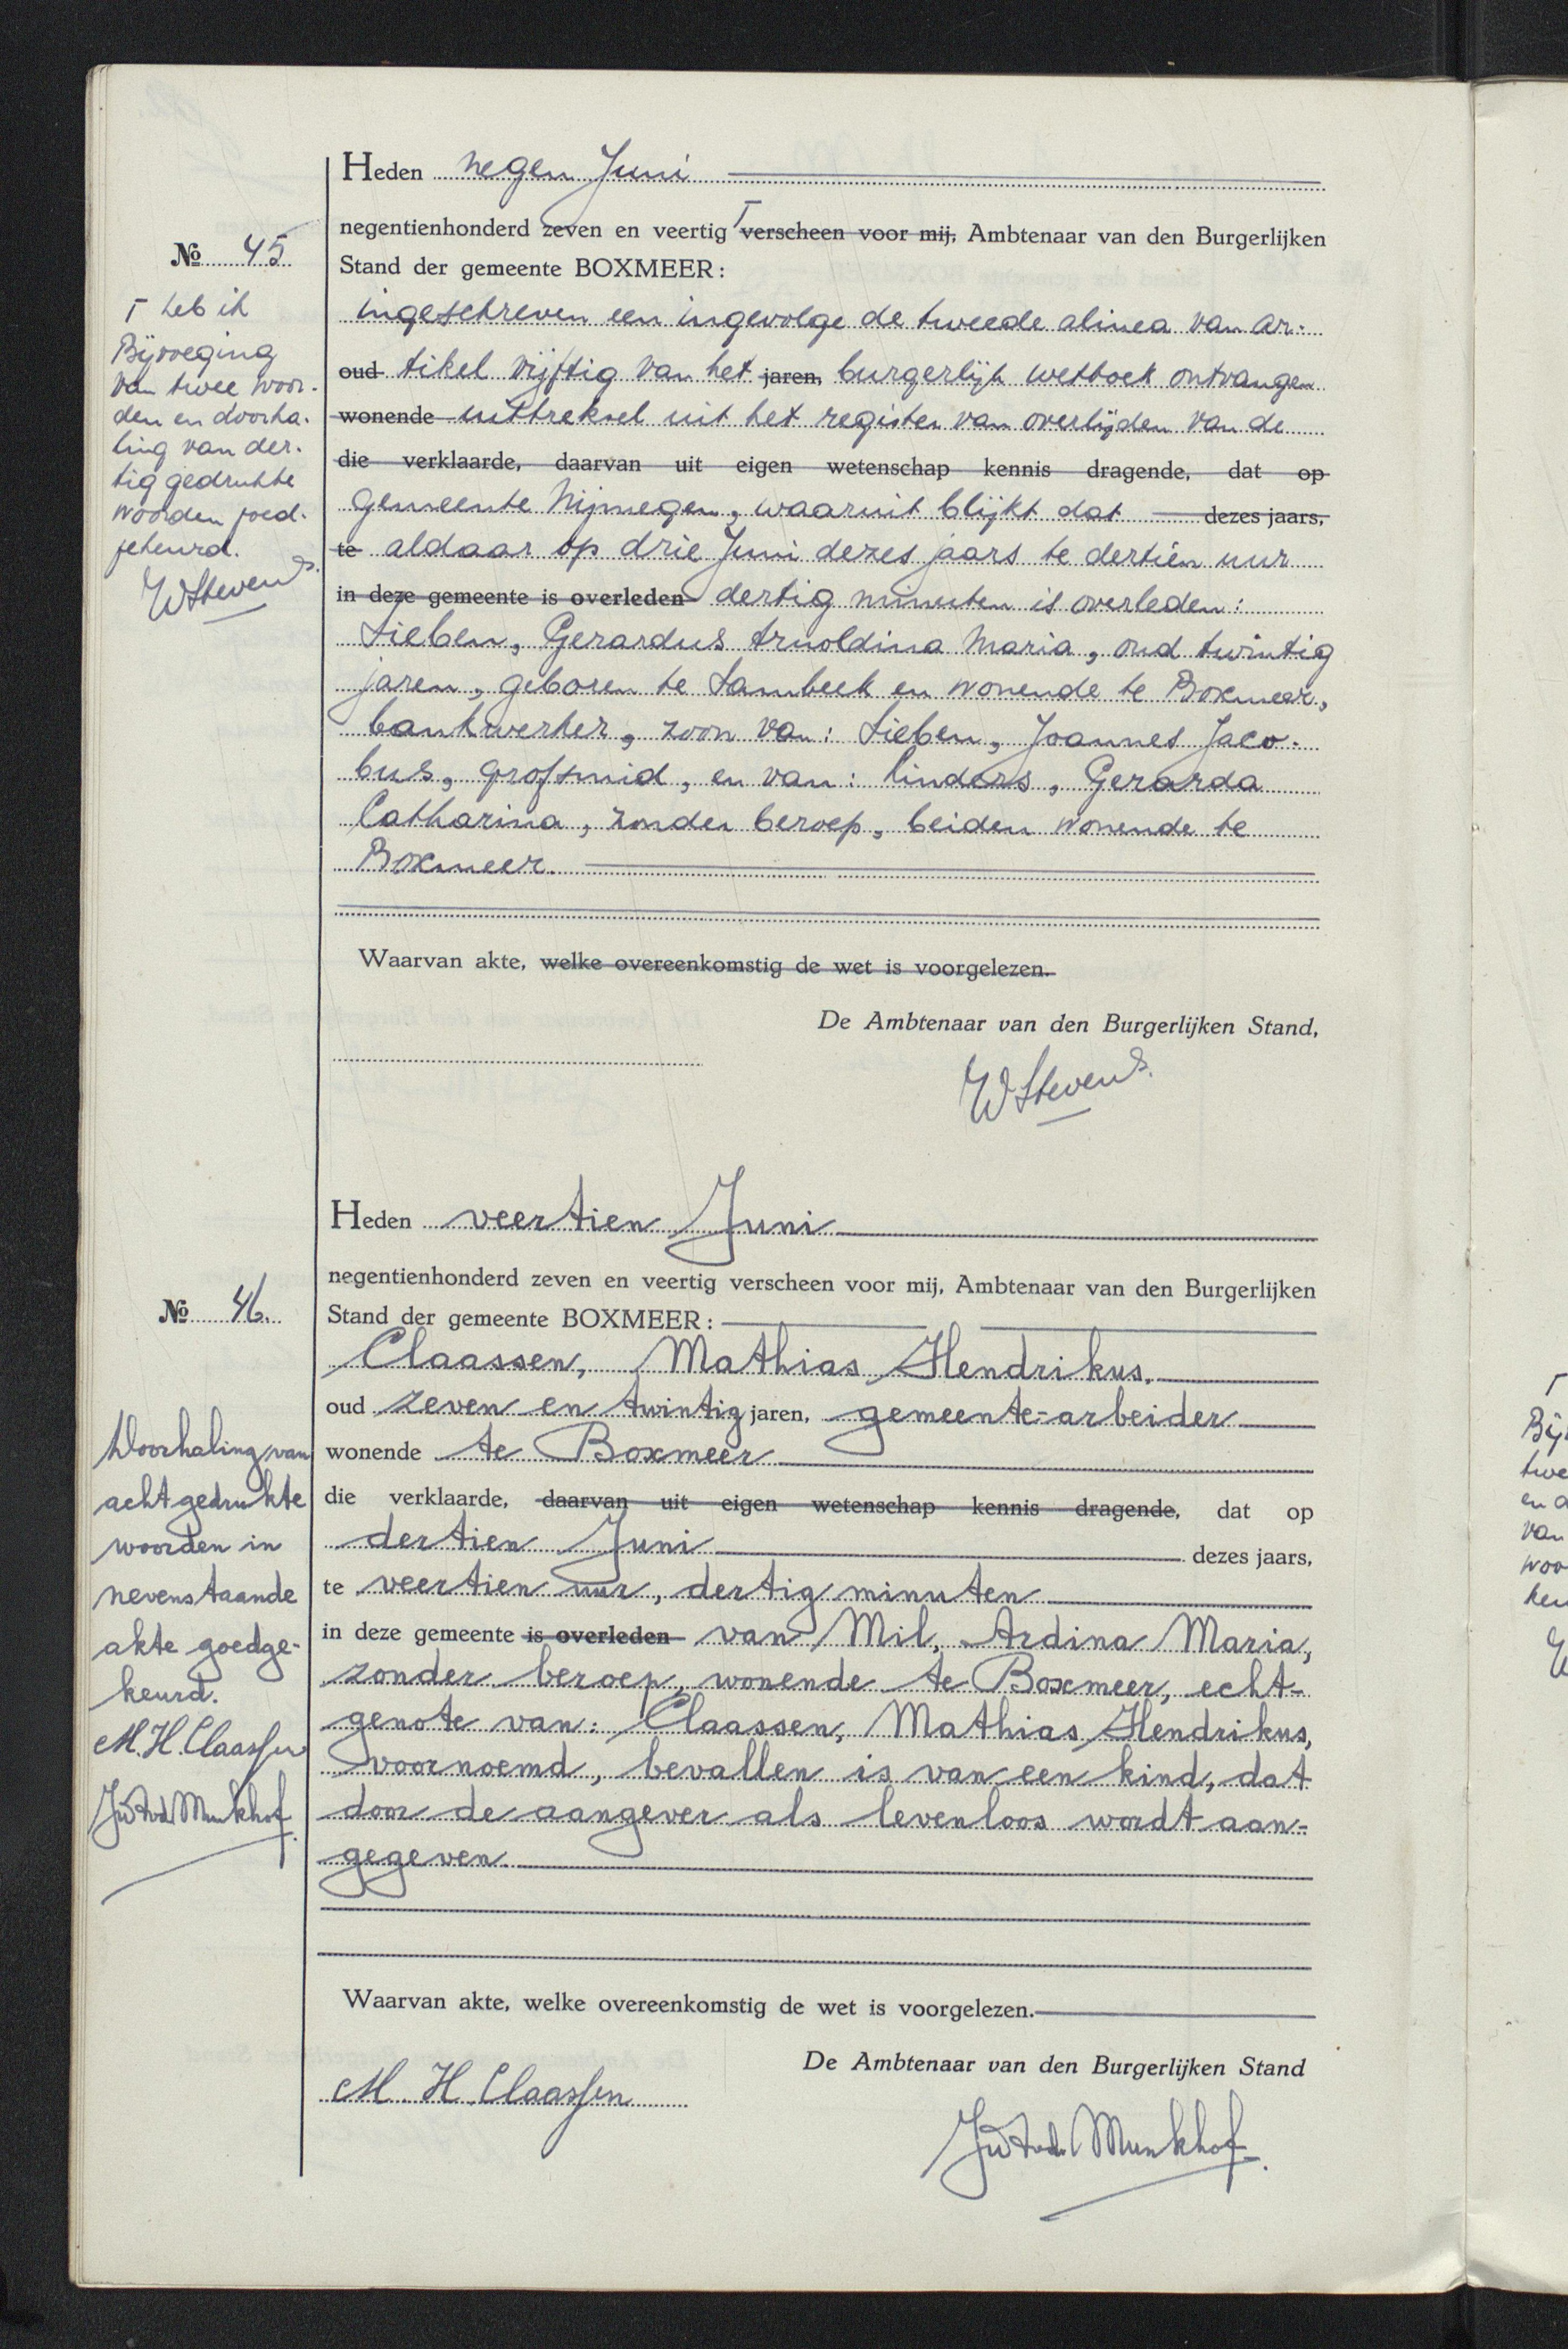 Heden negen Juni
negentienhonderd zeven en veertig Γ verscheen voor mij, Ambtenaar van den Burgerlijken
Stand der gemeente BOXMEER:
ingeschreven een ingevolge de tweede alinea van ar-
oud tikel vijftig van het jaren, burgerlijk wetboek ontvangen
wonende uittreksel uit het register van overlijden van de
die verklaarde, daarvan uit eigen wetenschap kennis dragende, dat op
gemeente Nijmegen, waaruit blijkt dat dezes jaars,
te aldaar op drie Juni dezes jaars te dertien uur
in deze gemeente is overleden dertig minuten is overleden:
Lieben, Gerardus Arnoldina Maria, oud twintig
jaren, geboren te Sambeek en wonende te Boxmeer,
bankwerker, zoon van: Lieben, Joannes Jaco-
bus, grofsmid, en van: Linders, Gerarda
Catharina, zonder beroep, beiden wonende te
Boxmeer.
Waarvan akte, welke overeenkomstig de wet is voorgelezen.
De Ambtenaar van den Burgerlijken Stand,
WStevens.
№ 45
Γ heb ik
Bijvoeging
van twee woor-
den en doorha-
ling van der-
tig gedrukte
woorden goed-
gekeurd.
WStevens.
Heden veertien Juni
negentienhonderd zeven en veertig verscheen voor mij, Ambtenaar van den Burgerlijken
Stand der gemeente BOXMEER:
Claassen, Mathias Hendrikus,
oud zeven en twintig jaren, gemeente-arbeider
wonende te Boxmeer
die verklaarde, daarvan uit eigen wetenschap kennis dragende, dat op
dertien Juni dezes jaars,
te veertien uur, dertig minuten
in deze gemeente is overleden van Mil, Ardina Maria,
zonder beroep, wonende te Boxmeer, echt-
genote van: Claassen, Mathias Hendrikus,
voornoemd, bevallen is van een kind, dat
door de aangever als levenloos wordt aan-
gegeven.
Waarvan akte, welke overeenkomstig de wet is voorgelezen.
De Ambtenaar van den Burgerlijken Stand
M. H. Claassen
Munkhof.
№ 46.
Doorhaling van
acht gedrukte
woorden in
nevenstaande
akte goedge-
keurd.
M. H. Claassen
Munkhof.
Γ
twe
van
woo